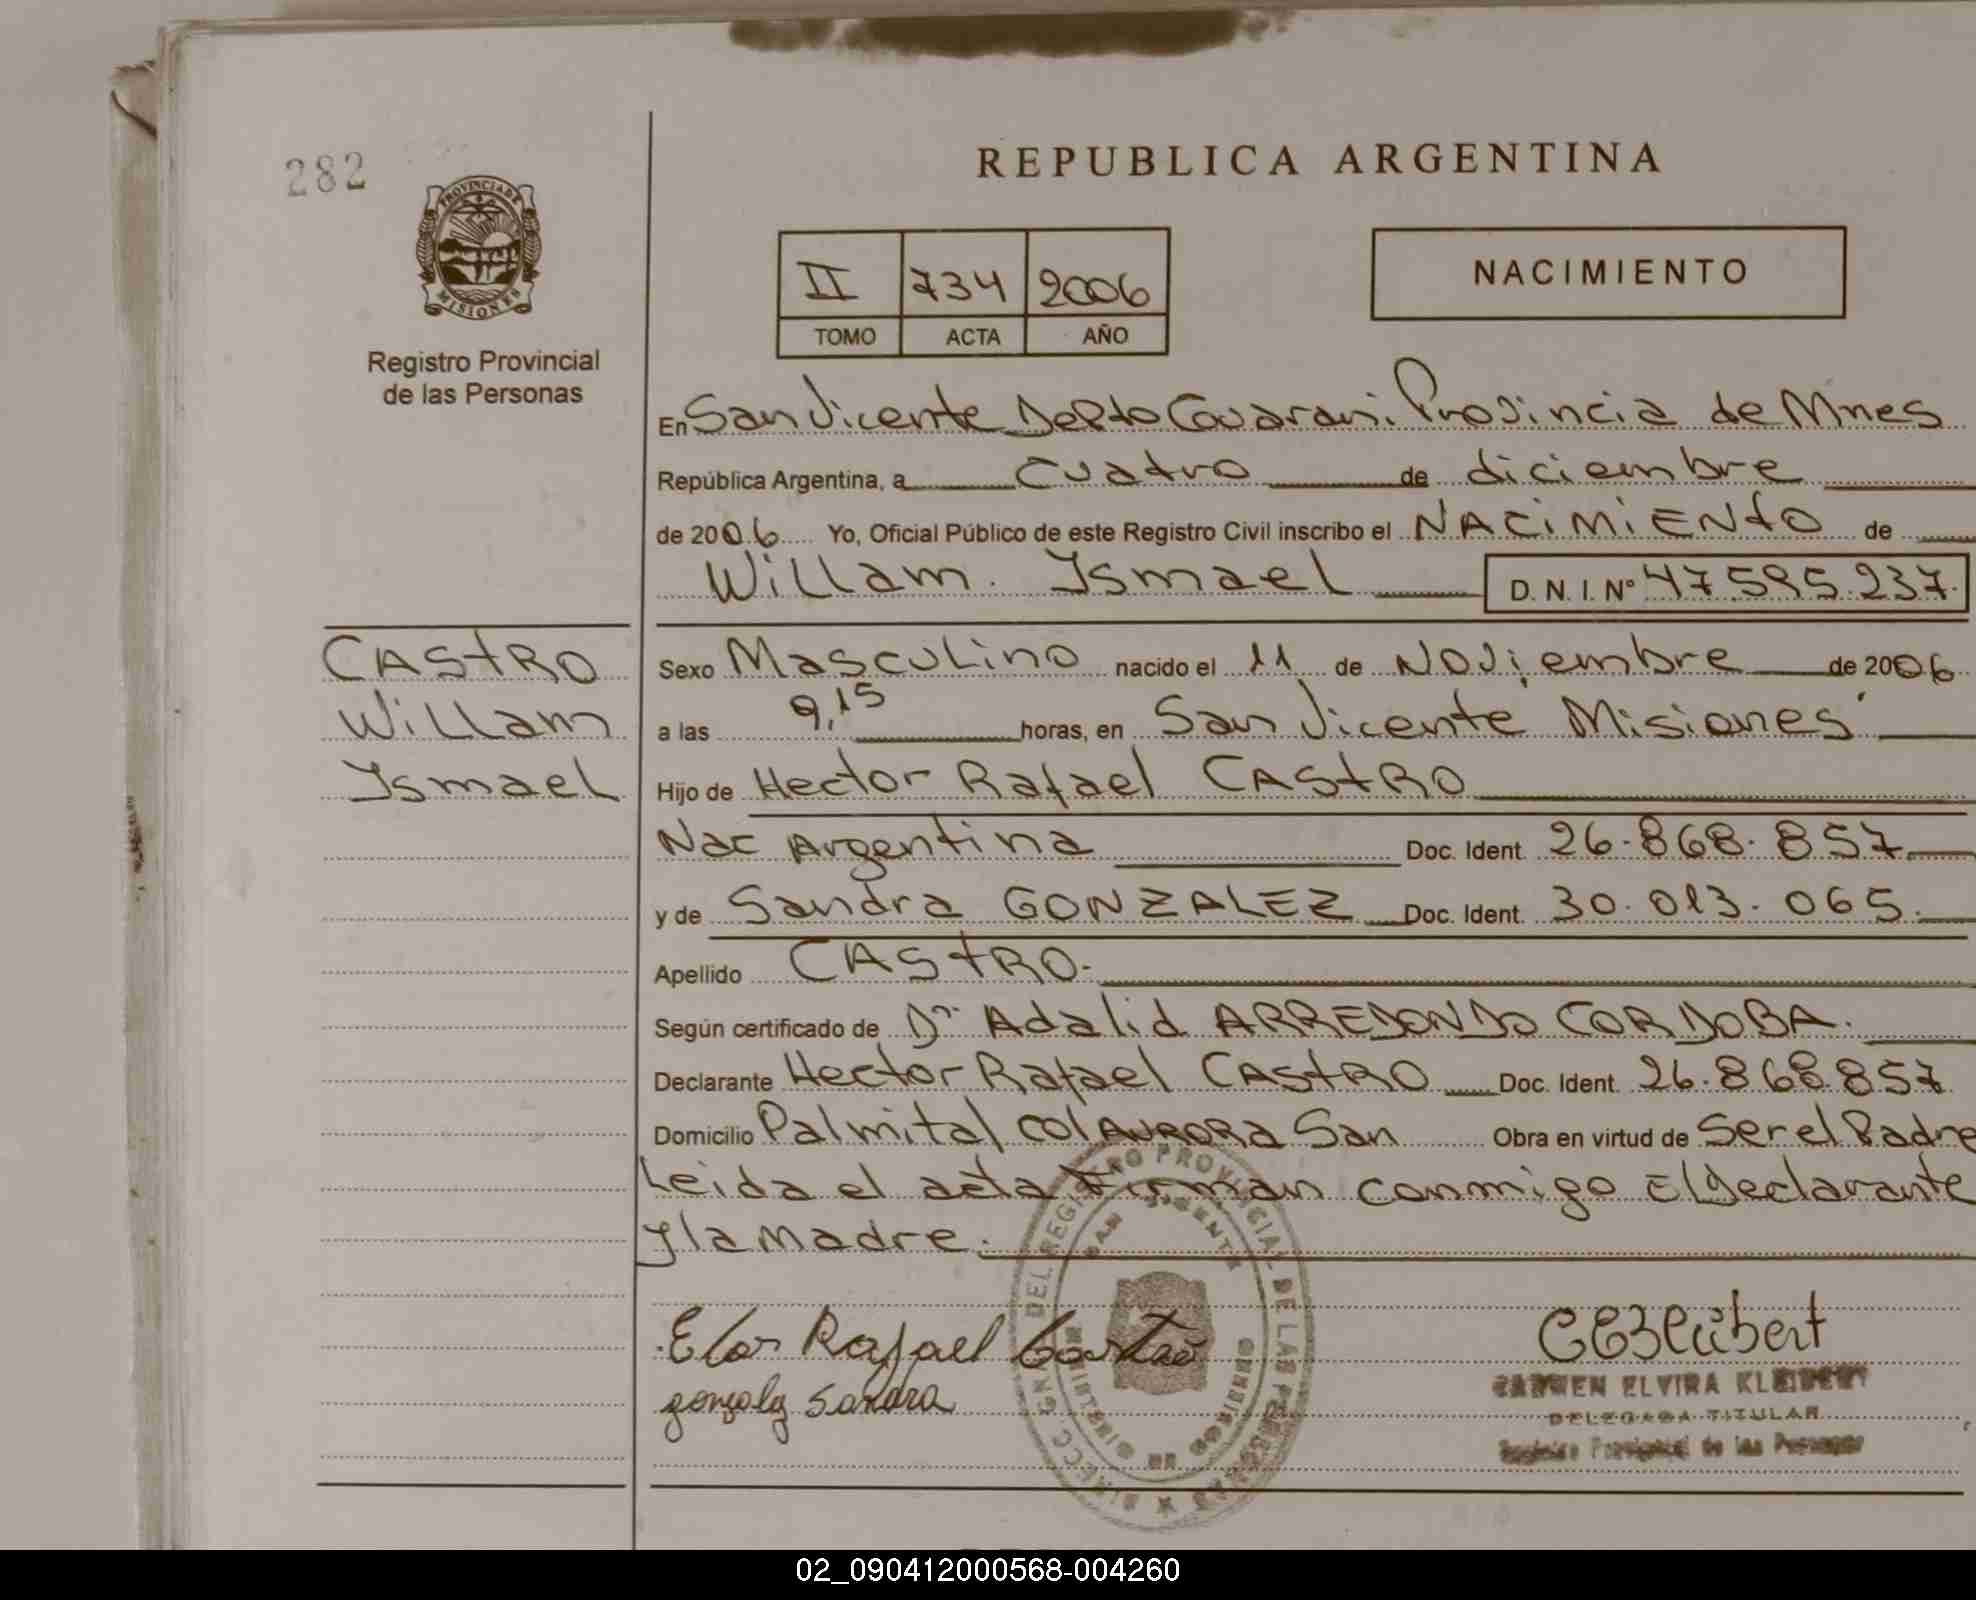 282
PROVINCIA DE
MISIONES
Registro Provincial
de las Personas
REPUBLICA ARGENTINA
II 734 2006
TOMO ACTA AÑO
NACIMIENTO
En San Vicente Depto Guarani Provincia de Mnes
República Argentina, a cuatro de diciembre
de 2006 Yo, Oficial Público de este Registro Civil inscribo el NACIMIENTO de
Willam Ismael D.N.I.Nº 47.595.237.
CASTRO
Willam
Ismael
Sexo Masculino nacido el 11 de Noviembre de 2006
a las 9,15 horas, en San Vicente Misiones
Hijo de Hector Rafael CASTRO
Nac Argentina Doc. Ident. 26.868.857
y de Sandra GONZALEZ Doc. Ident. 30.013.065.
Apellido CASTRO.
Según certificado de Dr. Adalid ARREDONDO CORDOBA.
Declarante Hector Rafael CASTRO Doc. Ident. 26.868.857
Domicilio Palmital Col AURORA San Obra en virtud de Ser el Padre
Leida el acta Firman conmigo El declarante
y la madre.
Rafael Castro
Sandra
CEKleibert
CARMEN ELVIRA KLEIBERT
DELEGADA TITULAR
Registro Provincial de las Personas
GRAL. DEL REGISTRO PROVINCIAL DE LAS PERSONAS
SAN VICENTE
MINISTERIO DE GOBIERNO
02_090412000568-004260